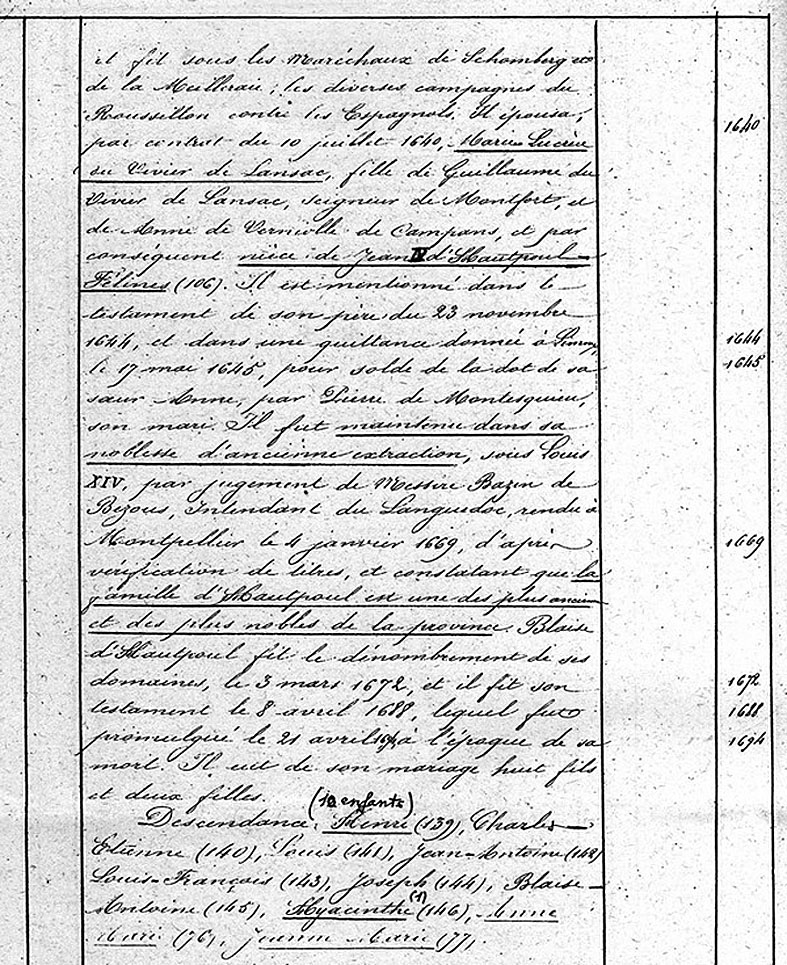 et fit sous les Maréchaux de Schomberg et
de la Meilleraie, les diverses campagnes du
Roussillon contre les Espagnols. Il épousa,
par contrat du 10 juillet 1640, Marie Lucrèce 1640
du Vivier de Lansac, fille de Guillaume du
Vivier de Lansac, seigneur de Montfort, et
de Anne de Verniolle de Campans, et par
conséquent nièce de Jean IV d'Hautpoul-
Félines (106). Il est mentionné dans le
testament de son père du 23 novembre
1644, et dans une quittance donnée à 1644
le 17 mai 1645, pour solde de la dot de sa 1645
sœur Anne, par Pierre de Montesquieu,
son mari. Il fut maintenu dans sa
noblesse d'ancienne extraction, sous Louis
XIV, par jugement de Messire Bazin de
Bezous, Intendant du Languedoc, rendu à
Montpellier le 4 janvier 1669, d'après 1669
vérification de titres, et constatant que la
famille d'Hautpoul est une des plus anciennes
et des plus nobles de la province. Blaise
d'Hautpoul fit le dénombrement de ses
domaines, le 3 mars 1672, et il fit son 1672
testament le 8 avril 1688, lequel fut 1688
promulgué le 21 avril 1694 à l'époque de sa 1694
mort. Il eut de son mariage huit fils
et deux filles.
(10 enfants)
Descendance: Henri (139), Charles-
Etienne (140), Louis (141), Jean-Antoine (142)
Louis-François (143), Joseph (144), Blaise-
Antoine (145), Hyacinthe (1) (146), Anne
Marie (76), Jeanne Marie (77).